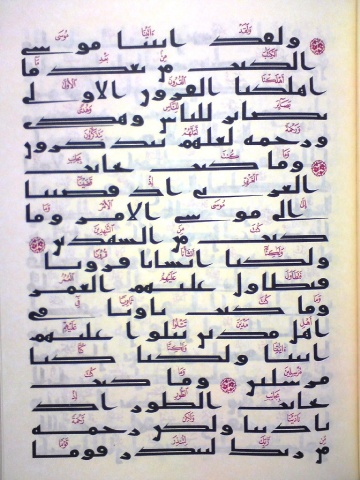 ولقد اتينا موسى
الكتب من بعد ما
اهلكنا القرون الاولى
بصائر للناس وهدى
ورحمة لعلهم يتذكرون
وما كنت بجانب
الغربي اذ قضينا
الى موسى الامر وما
كنت من الشهدين
ولكنا انشانا قرونا
فتطاول عليهم العمر
وما كنت ثاويا في
اهل مدين تتلوا عليهم
ايتنا ولكنا كنا
مرسلين وما كنت
بجانب الطور اذ
نادينا ولكن رحمة
من ربك لتنذر قوما